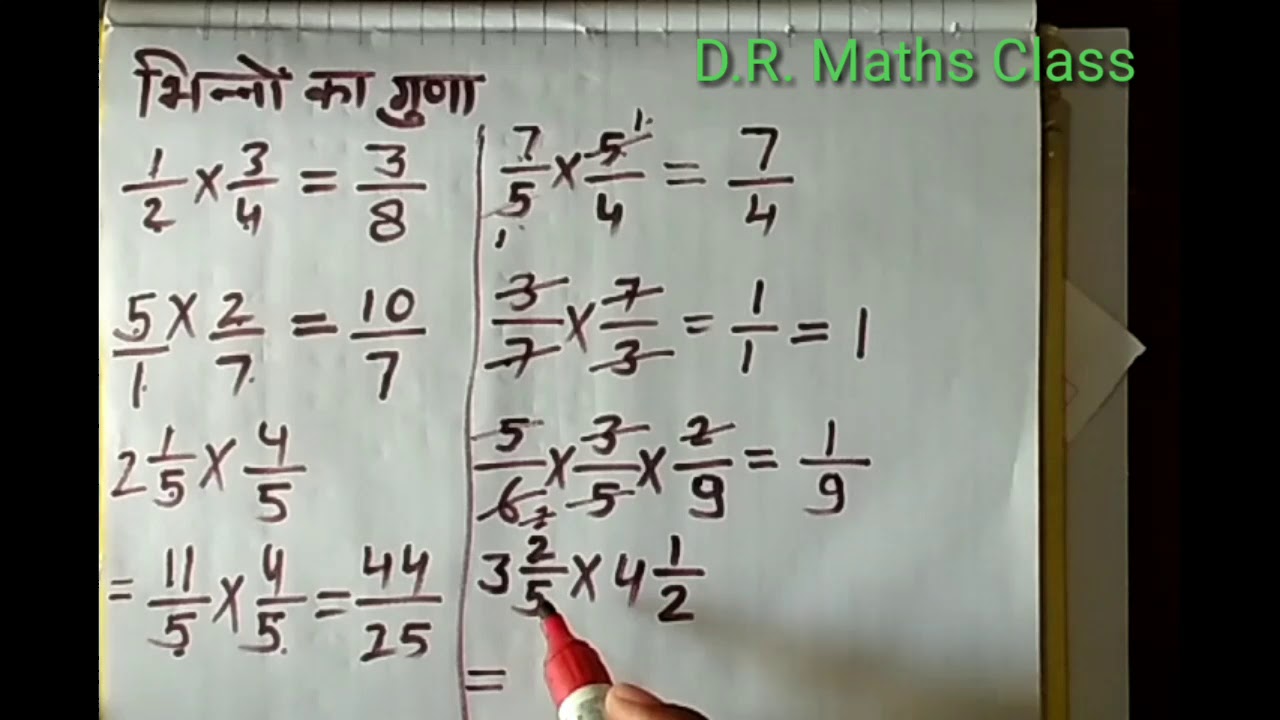 D.R. Maths Class
भिन्नों का गुणा
1/2 × 3/4 = 3/8
5/1 × 2/7 = 10/7
2 1/5 × 4/5
= 11/5 × 4/5 = 44/25
7/5 1 × 5/4 1 = 7/4
3/7 × 7/3 = 1/1 = 1
5/6 2 × 3/5 × 2/9 = 1/9
3 2/5 × 4 1/2
=